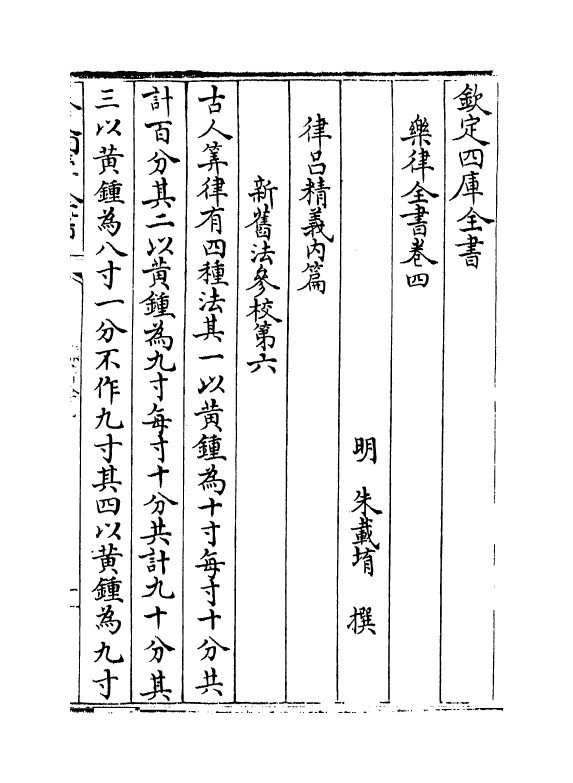 欽定四庫全書
樂律全書卷四
明 朱載堉 撰
律呂精義內篇
新舊法參校第六
古人筭律有四種法其一以黃鍾為十寸每寸十分共
計百分其二以黃鍾為九寸每寸十分共計九十分其
三以黃鍾為八寸一分不作九寸其四以黃鍾為九寸